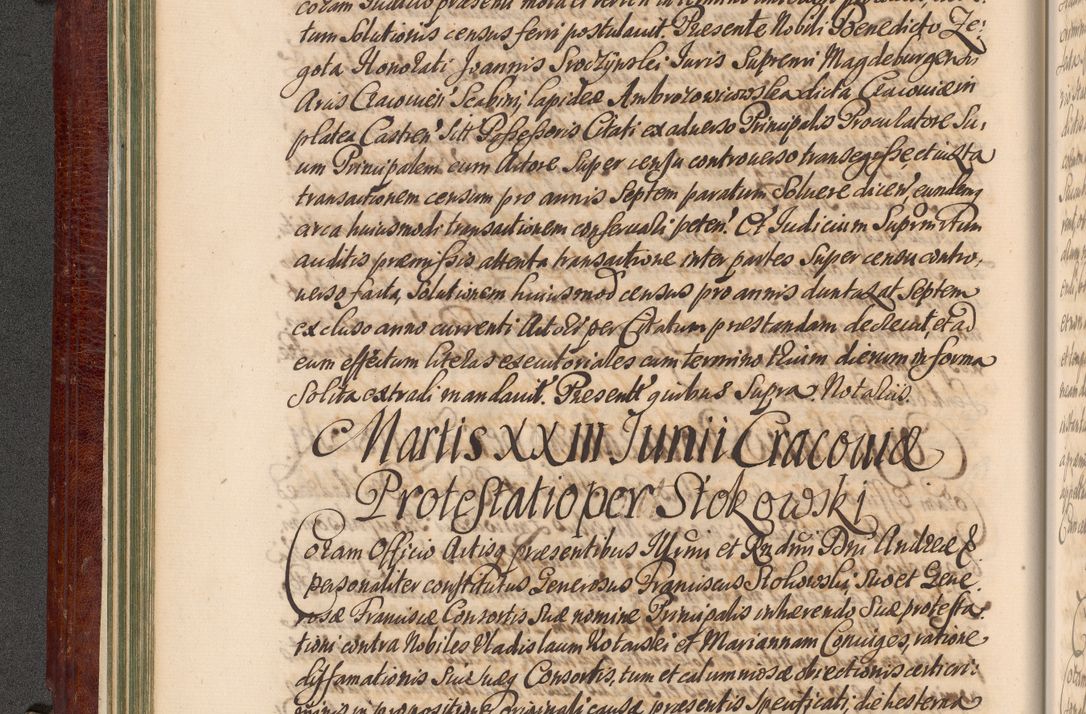 tum Solutionis census ferri postulavit. Presente Nobili Benedicto Ze-
gota Honorati Joannis Sroczynski Juris Supremi Magdeburgen
Arcis Cracovien Scabini, lapideæ Ambrozowicowska dicta Cracoviæ in
platea Castren Possessoris Citati ex adverso Principalis Procuratore Su-
um Principalem cum Actore Super censu controverso transegisse, et iuxta
transactionem censum pro annis Septem paratum Soluere dicen, eundemq
arca huiusmodi transactionem conservali peten. Et Judicium
auditis præmissis attenta transactione inter partes Super censu contro-
verso facta, Solutionem huiusmodi census pro annis duntaxat Septem
excluso anno currenti Actori per Citatum præstandam decrevit et ad
eum effectum literas executoriales cum termino dierum in forma
Solita extradi mandavit. Present quibus Supra. Notarius.
Martis XXIII Junii Cracoviæ
Protestatio per Stokowski
Coram Officio Actisq præsentibus Illmi et Rndmi Dni Andreæ &
personaliter constitutus Generosus Franciscus Stokowski Suo et Gene
rosæ Franciscæ Consortis Suæ nomine Principalis inhærendo Suæ protesta-
tioni contra Nobiles Vladislaum et Mariannam Coniuges, ratione
diffamationis Sui Suæq Consortis, tum et calumniosæ obiectionis certi cri-
minis in propositione originali causæ præsentis Specificati, die hesterna